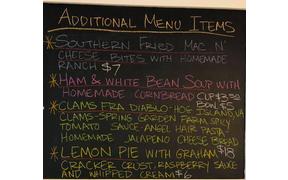 ADDITIONAL MENU ITEMS
SOUTHERN FRIED MAC N'
CHEESE BITES WITH HOMEMADE
RANCH $7
HAM & WHITE BEAN SOUP WITH
HOMEMADE CORNBREAD CUP $3.50
BOWL $5
CLAMS FRA DIABLO-HOG ISLAND, VA
CLAMS-SPRING GARDEN FARM SPICY
TOMATO SAUCE-ANGEL HAIR PASTA
HOMEMADE JALAPENO CHEESE BREAD
$18
LEMON PIE WITH GRAHAM
CRACKER CRUST, RASPBERRY SAUCE
AND WHIPPED CREAM $6